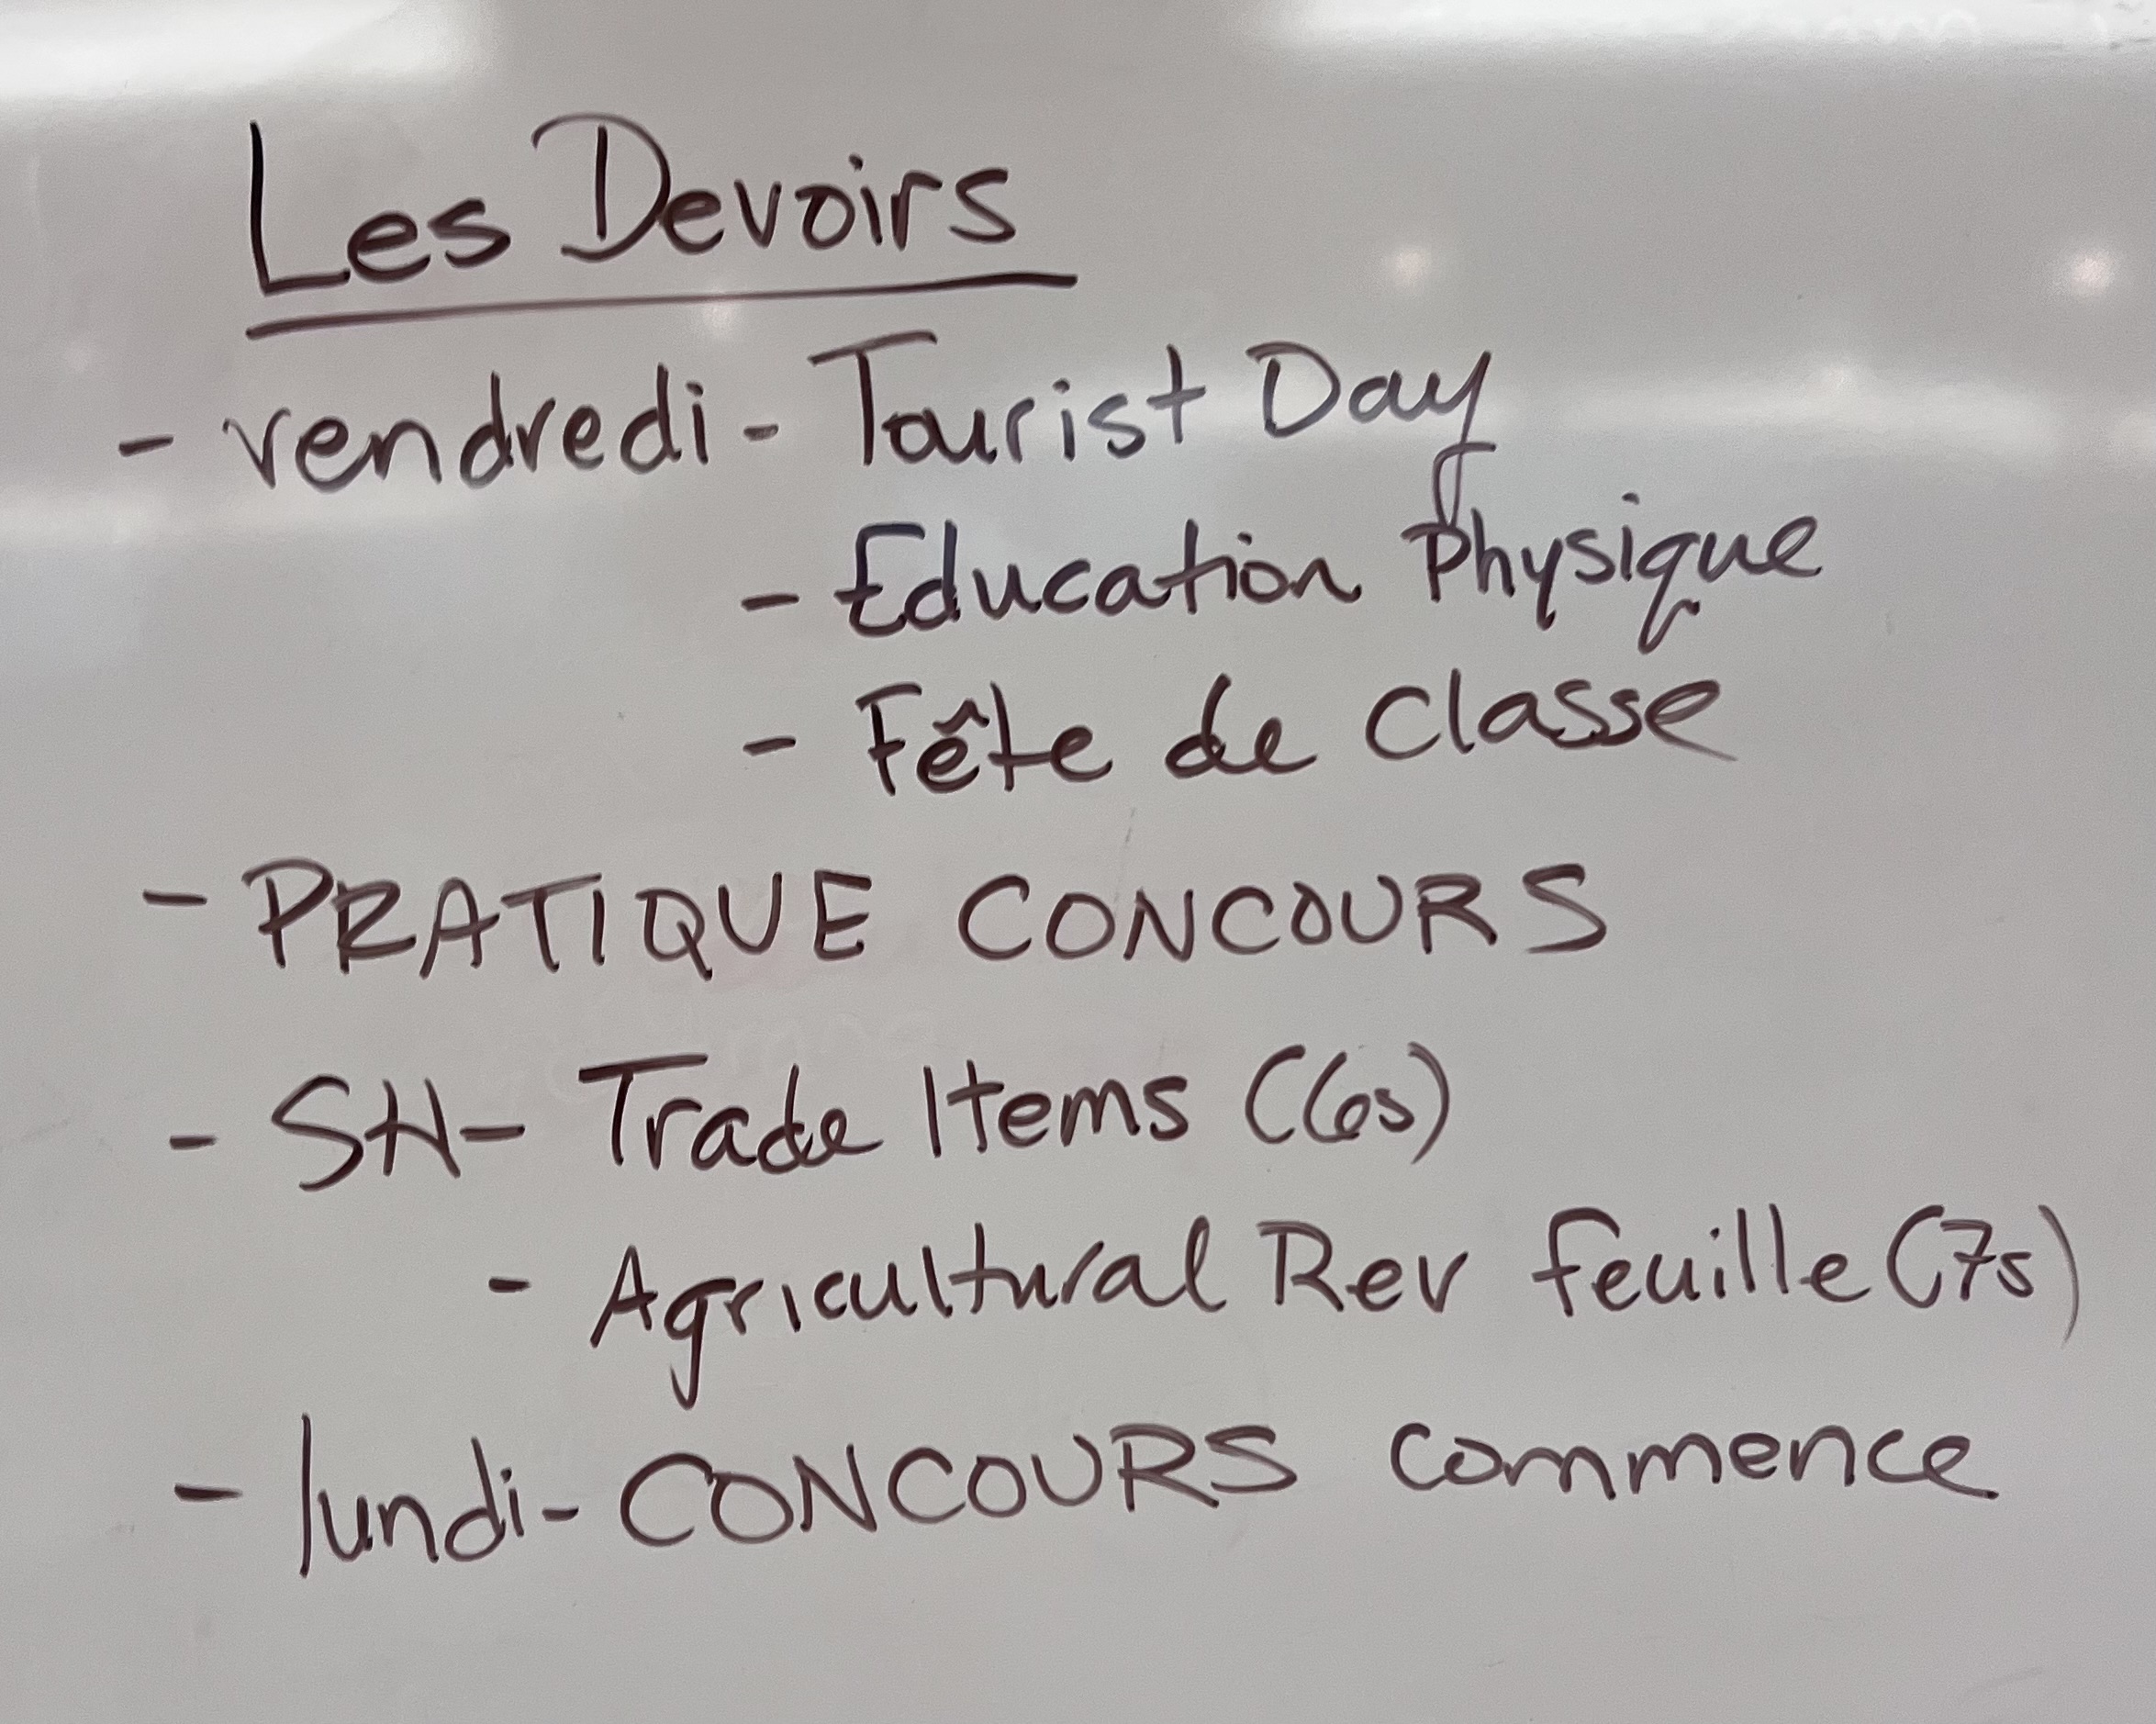 Les Devoirs
- vendredi - Tourist Day
- Education Physique
- Fête de classe
- PRATIQUE CONCOURS
- SH - Trade Items (6s)
- Agricultural Rev feuille (7s)
- lundi - CONCOURS commence